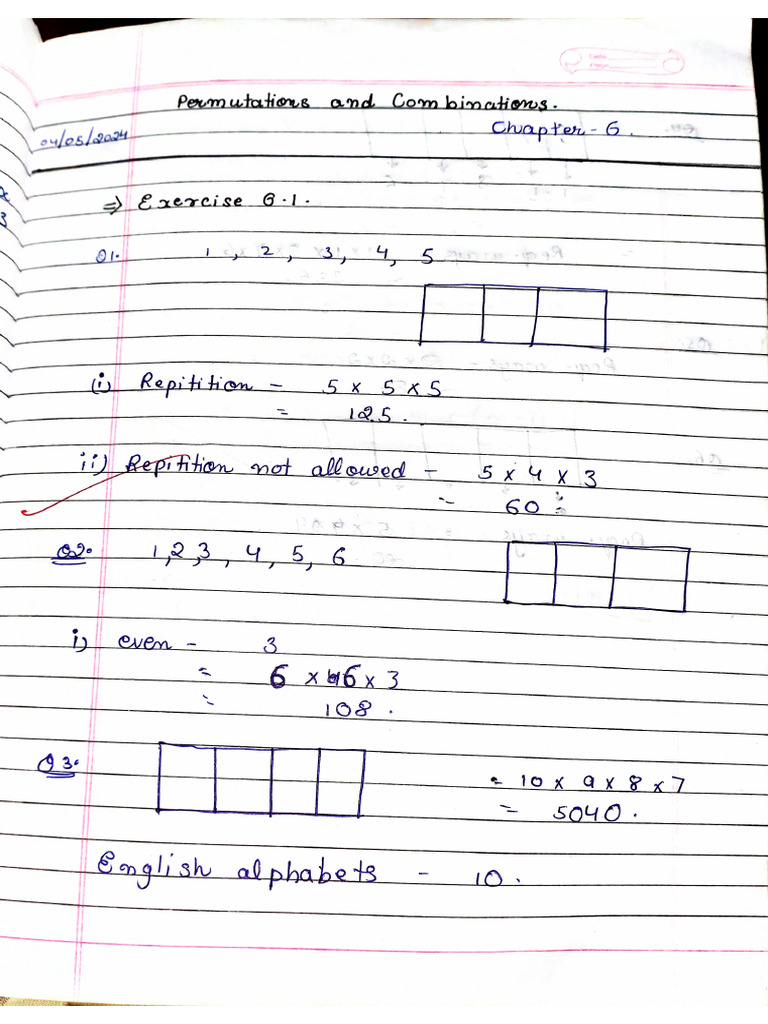 Permutations and Combinations.
Chapter - 6.
04/05/2024
⇒ Exercise 6.1.
Q1. 1, 2, 3, 4, 5
(i) Repitition - 5 x 5 x 5
= 125.
ii) Repitition not allowed - 5 x 4 x 3
= 60
Q2. 1,2,3, 4, 5, 6
i) even - 3
= 6 x 6 x 3
= 108.
Q3.
= 10 x 9 x 8 x 7
= 5040.
English alphabets - 10.